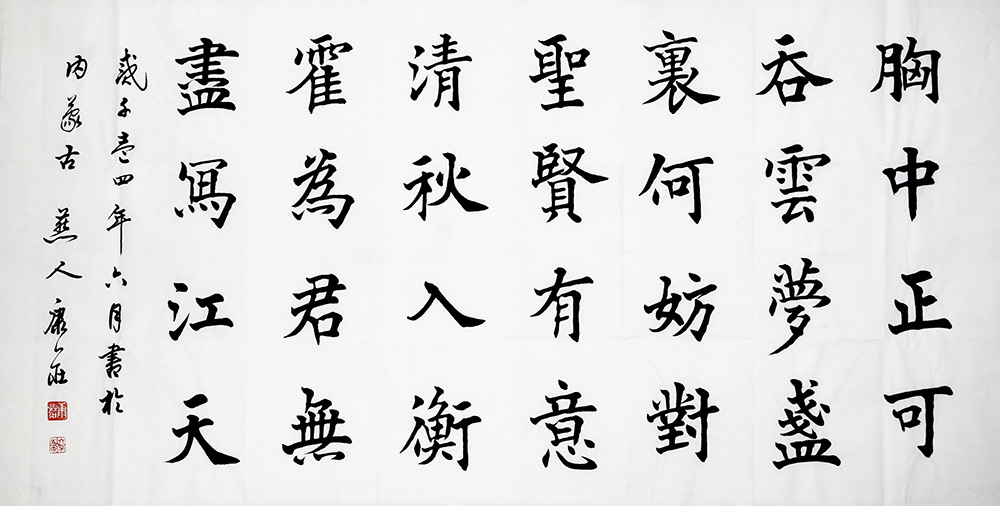 胸中正可
吞雲夢盞
裏何妨對
聖賢有意
清秋入衡
霍為君無
盡寫江天
歲子壱四年六月書於
內蒙古 燕人康莊